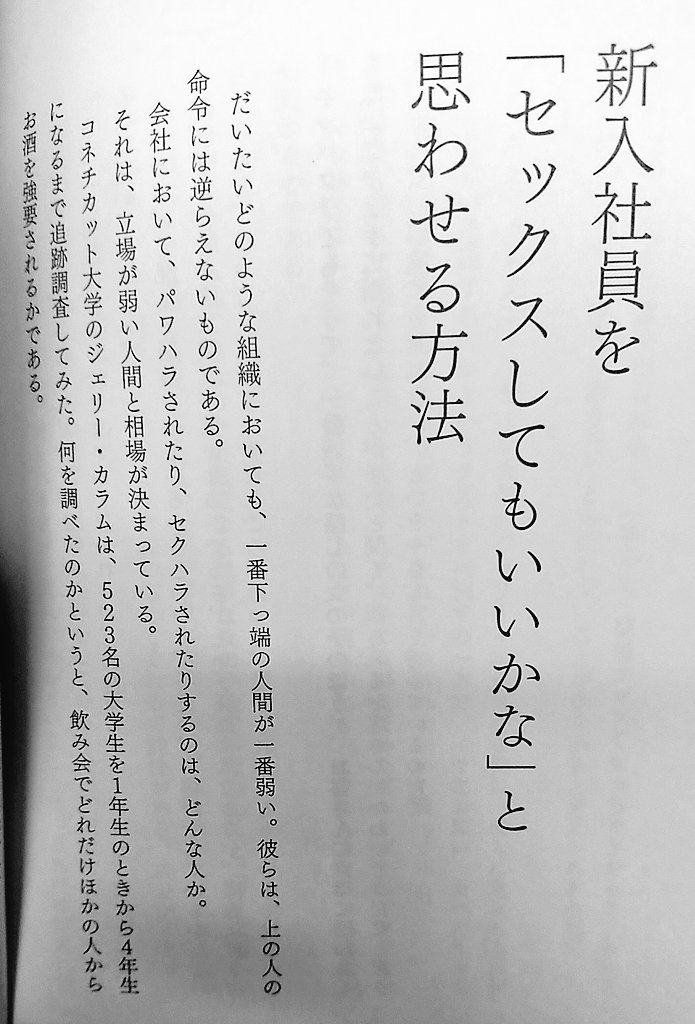 新入社員を
「セックスしてもいいかな」と
思わせる方法
だいたいどのような組織においても、一番下っ端の人間が一番弱い。彼らは、上の人の
命令には逆らえないものである。
会社において、パワハラされたり、セクハラされたりするのは、どんな人か。
それは、立場が弱い人間と相場が決まっている。
コネチカット大学のジェリー・カラムは、523名の大学生を1年生のときから4年生
になるまで追跡調査してみた。何を調べたのかというと、飲み会でどれだけほかの人から
お酒を強要されるかである。